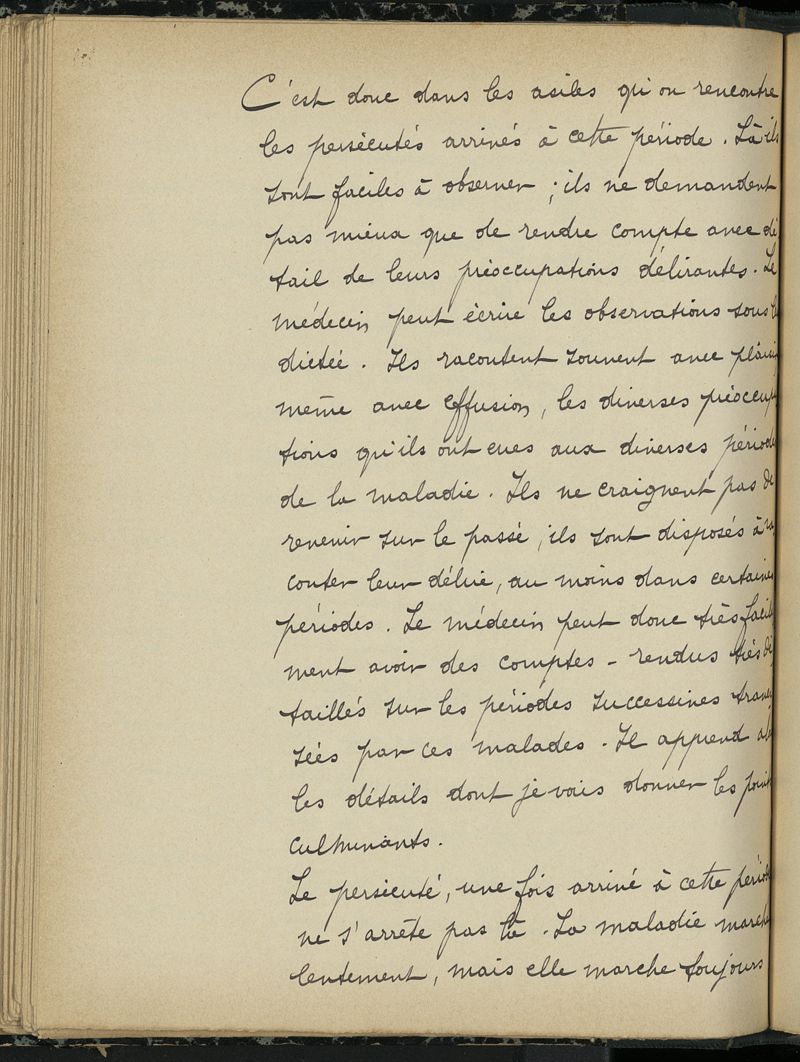 C'est donc dans les asiles qu'on rencontre
les persécutés arrivés à cette période. Là ils
sont faciles à observer ; ils ne demandent
pas mieux que de rendre compte avec dé
tail de leurs préoccupations délirantes. Le
médecin peut écrire les observations sous la
dictée. Ils racontent souvent avec plaisir,
même avec effusion, les diverses préoccupa
tions qu'ils ont eues aux diverses périodes
de la maladie. Ils ne craignent pas de
revenir sur le passé, ils sont disposés à ra
conter leur délire, au moins dans certaines
périodes. Le médecin peut donc très facile
ment avoir des comptes-rendus très dé
taillés sur les périodes successives traver
sées par ces malades. Il apprend
les détails dont je vais donner les points
culminants.
Le persécuté, une fois arrivé à cette période
ne s'arrête pas là. La maladie marche
lentement, mais elle marche toujours